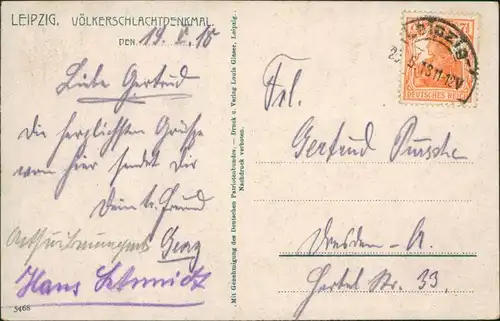 LEIPZIG, VÖLKERSCHLACHTDENKMAL
DEN 19. V. 18
Liebe Gertrud
die herzlichsten Grüße
von hier sendet Dir
Dein tr. Freund
Georg
Hans Schmidt
3468
Mit Genehmigung des Deutschen Patriotenbundes. — Druck u. Verlag Louis Glaser, Leipzig.
Nachdruck verboten.
LEIPZIG
11-12V
7½
DEUTSCHES REICH
Frl.
Gertrud
Dresden-A.
Hertel Str. 33.